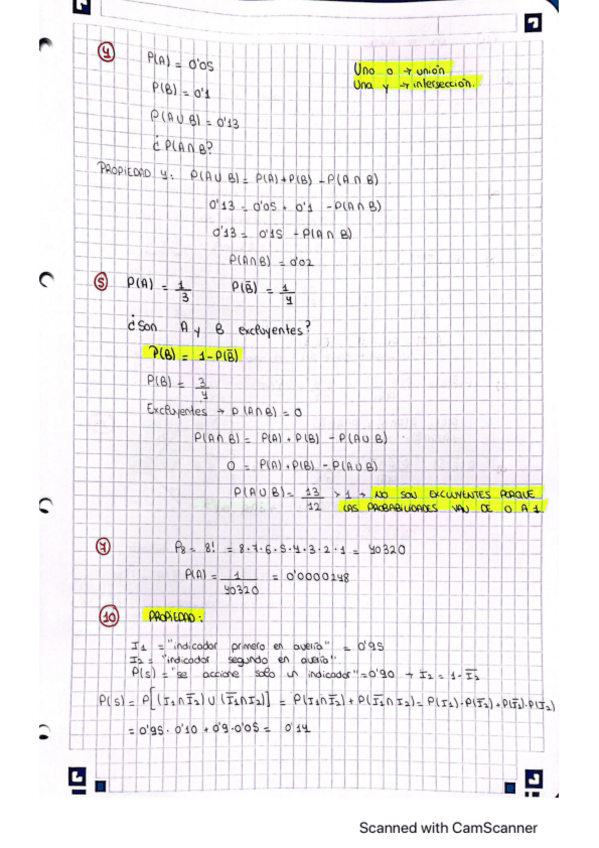 4
P(A) = 0'05
P(B) = 0'1
P(A∪B) = 0'13
¿P(A∩B?
Uno o → unión
Una y → intersección.
PROPIEDAD 4: P(A∪B) = P(A)+P(B) - P(A∩B)
0'13 = 0'05 + 0'1 - P(A∩B)
0'13 = 0'15 - P(A∩B)
P(A∩B) = 0'02
5 P(A) = 1/3 P(B̄) = 1/4
¿Son A y B excluyentes?
P(B) = 1-P(B̄)
P(B) = 3/4
Excluyentes → P(A∩B) = 0
P(A∩B) = P(A) + P(B) - P(A∪B)
0 = P(A)+P(B) - P(A∪B)
P(A∪B) = 13/12 > 1 → NO SON EXCLUYENTES PORQUE
LAS PROBABILIDADES VAN DE 0 A 1.
7 P₈ = 8! = 8·7·6·5·4·3·2·1 = 40320
P(A) = 1/40320 = 0'0000248
10 PROPIEDAD:
I₁ = "indicador primero en avería" = 0'95
I₂ = "indicador segundo en avería"
P(s) = "se accione solo un indicador" = 0'90 → I₂ = 1-Ī₂
P(s) = P[(I₁∩Ī₂)∪(Ī₁∩I₂)] = P(I₁∩Ī₂)+P(Ī₁∩I₂) = P(I₁)·P(Ī₂)+P(Ī₁)·P(I₂)
= 0'95·0'10 + 0'9·0'05 = 0'14
Scanned with CamScanner